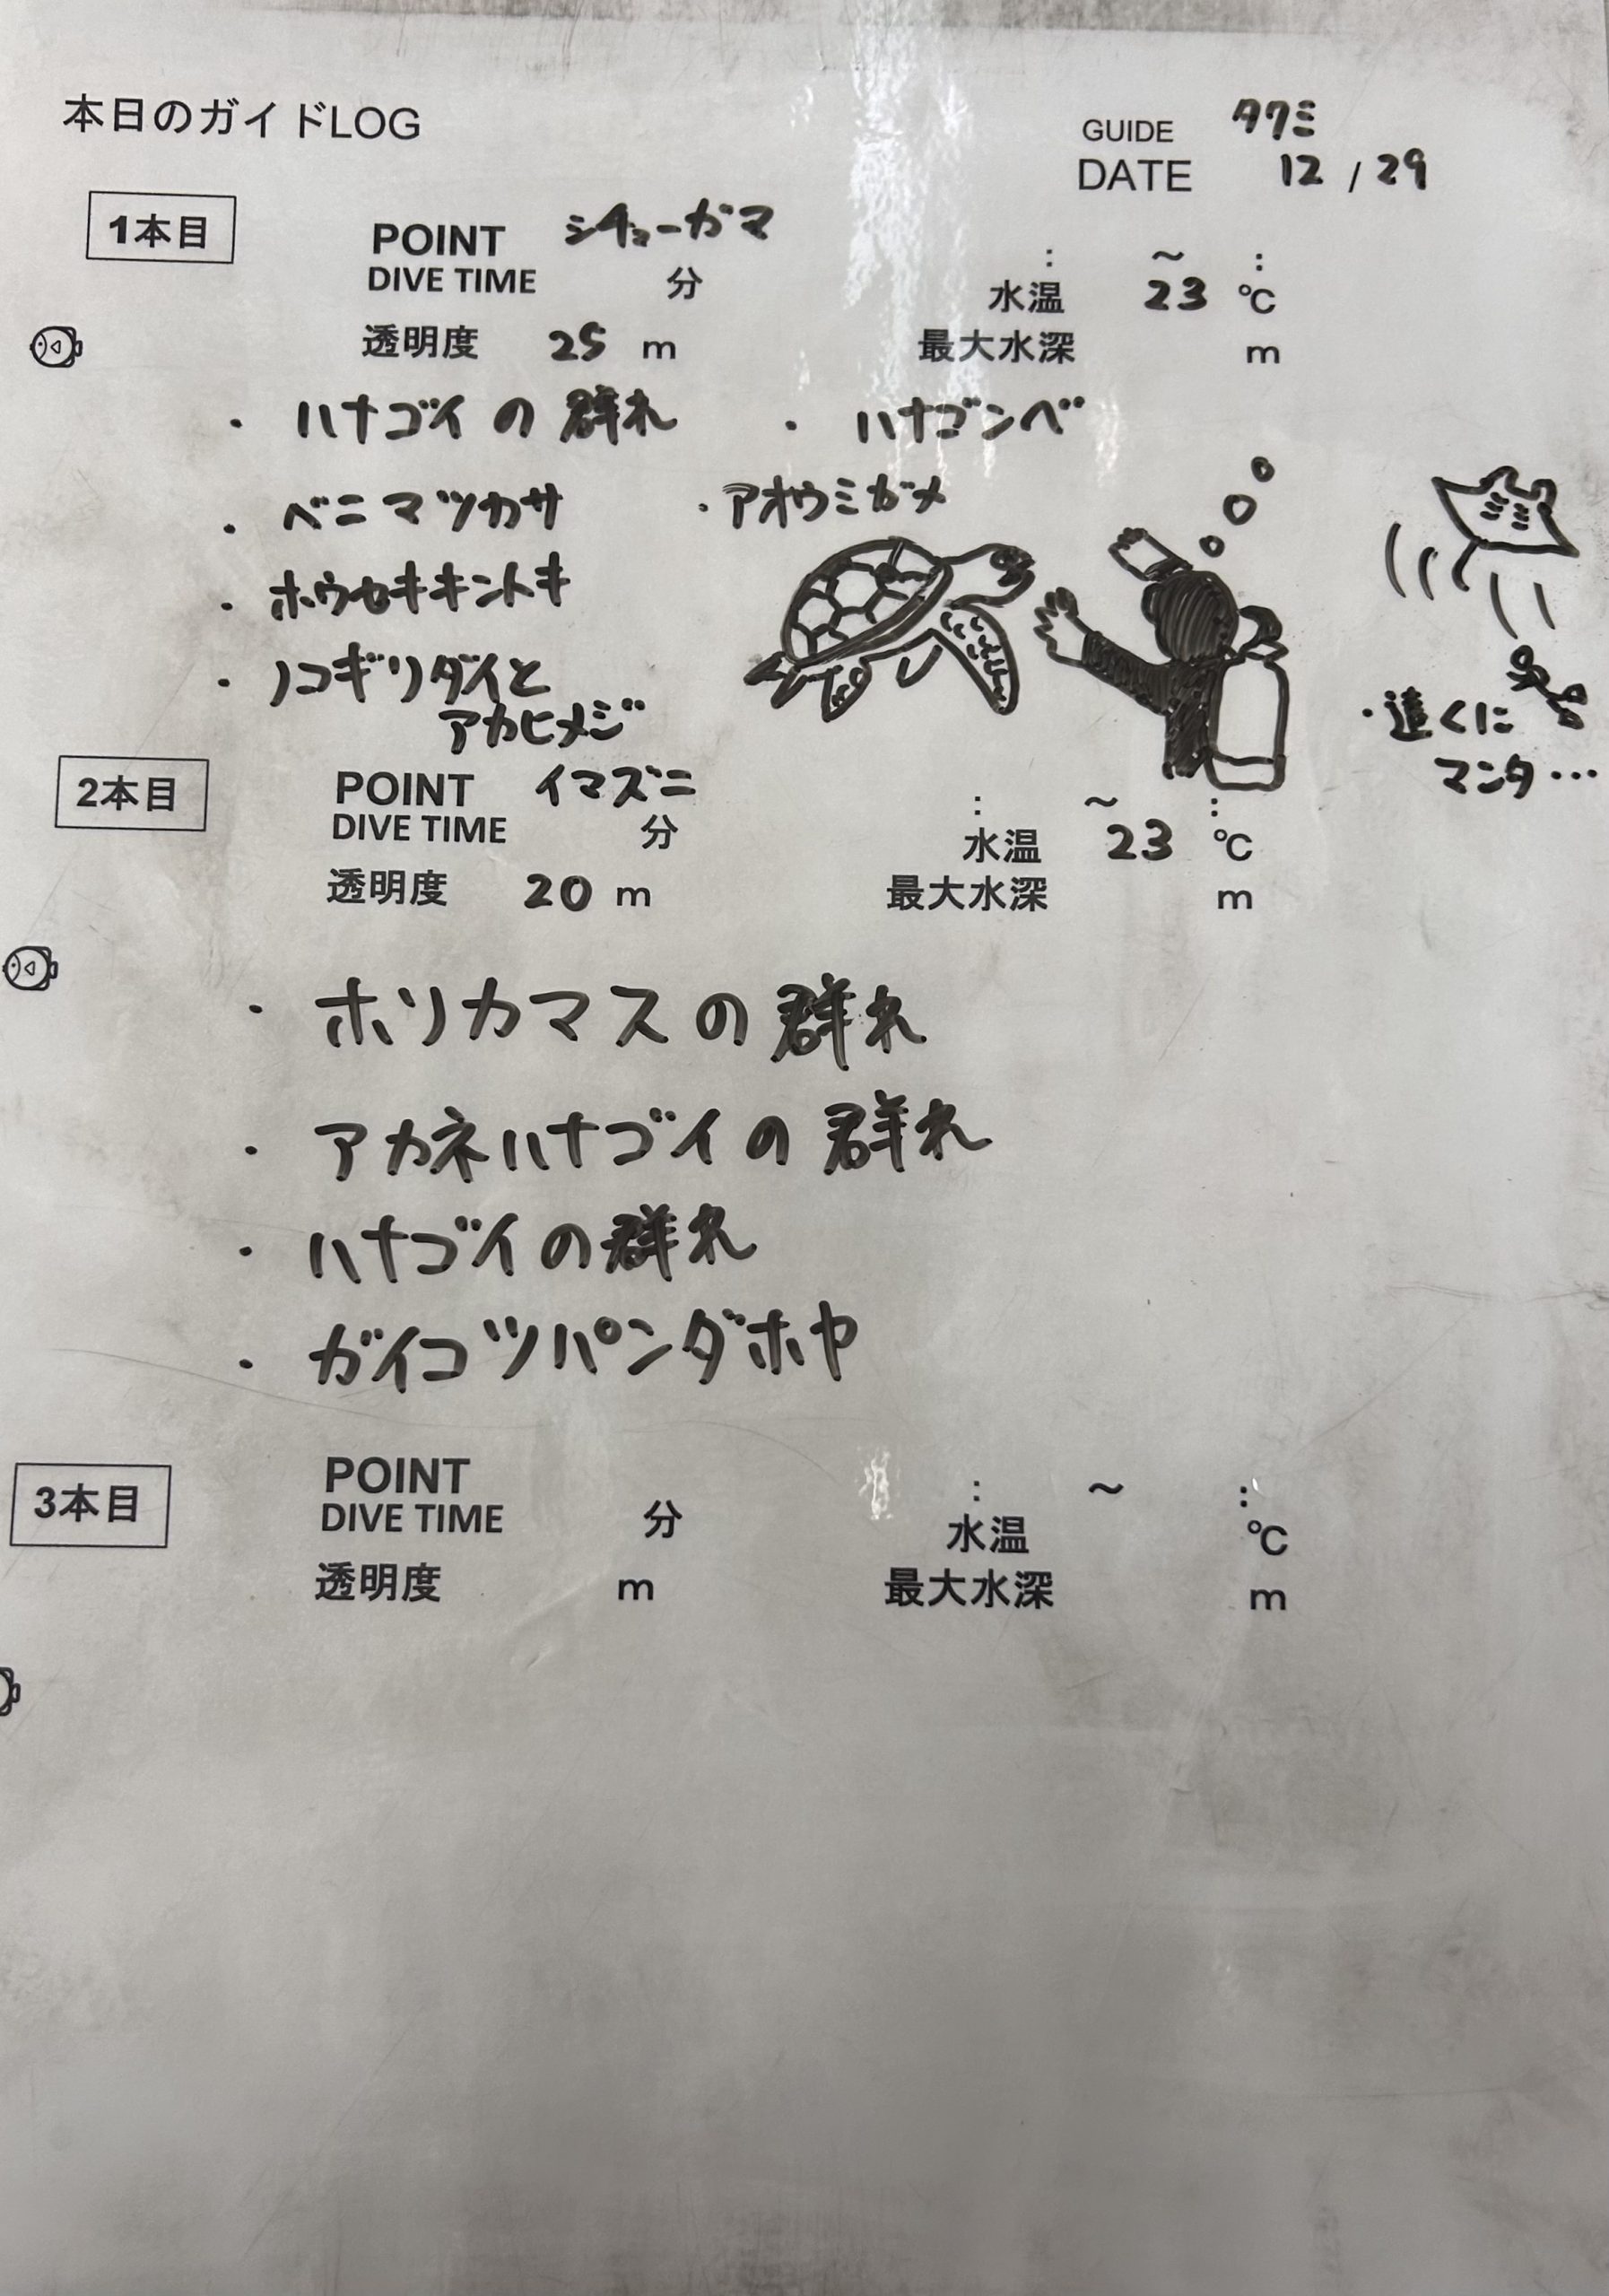 本日のガイドLOG
GUIDE タクミ
DATE 12 / 29
1本目
POINT シチューガマ
: ～ :
DIVE TIME 分
水温 23 ℃
透明度 25 m
最大水深 m
・ハナゴイの群れ ・ハナゴンベ
・ベニマツカサ ・アオウミガメ
・ホウセキキントキ
・ノコギリダイと
アカヒメジ
・遠くに
マンタ…
2本目
POINT イマズニ
: ～ :
DIVE TIME 分
水温 23 ℃
透明度 20 m
最大水深 m
・ホソカマスの群れ
・アカネハナゴイの群れ
・ハナゴイの群れ
・ガイコツパンダホヤ
3本目
POINT
: ～ :
DIVE TIME 分
水温 ℃
透明度 m
最大水深 m